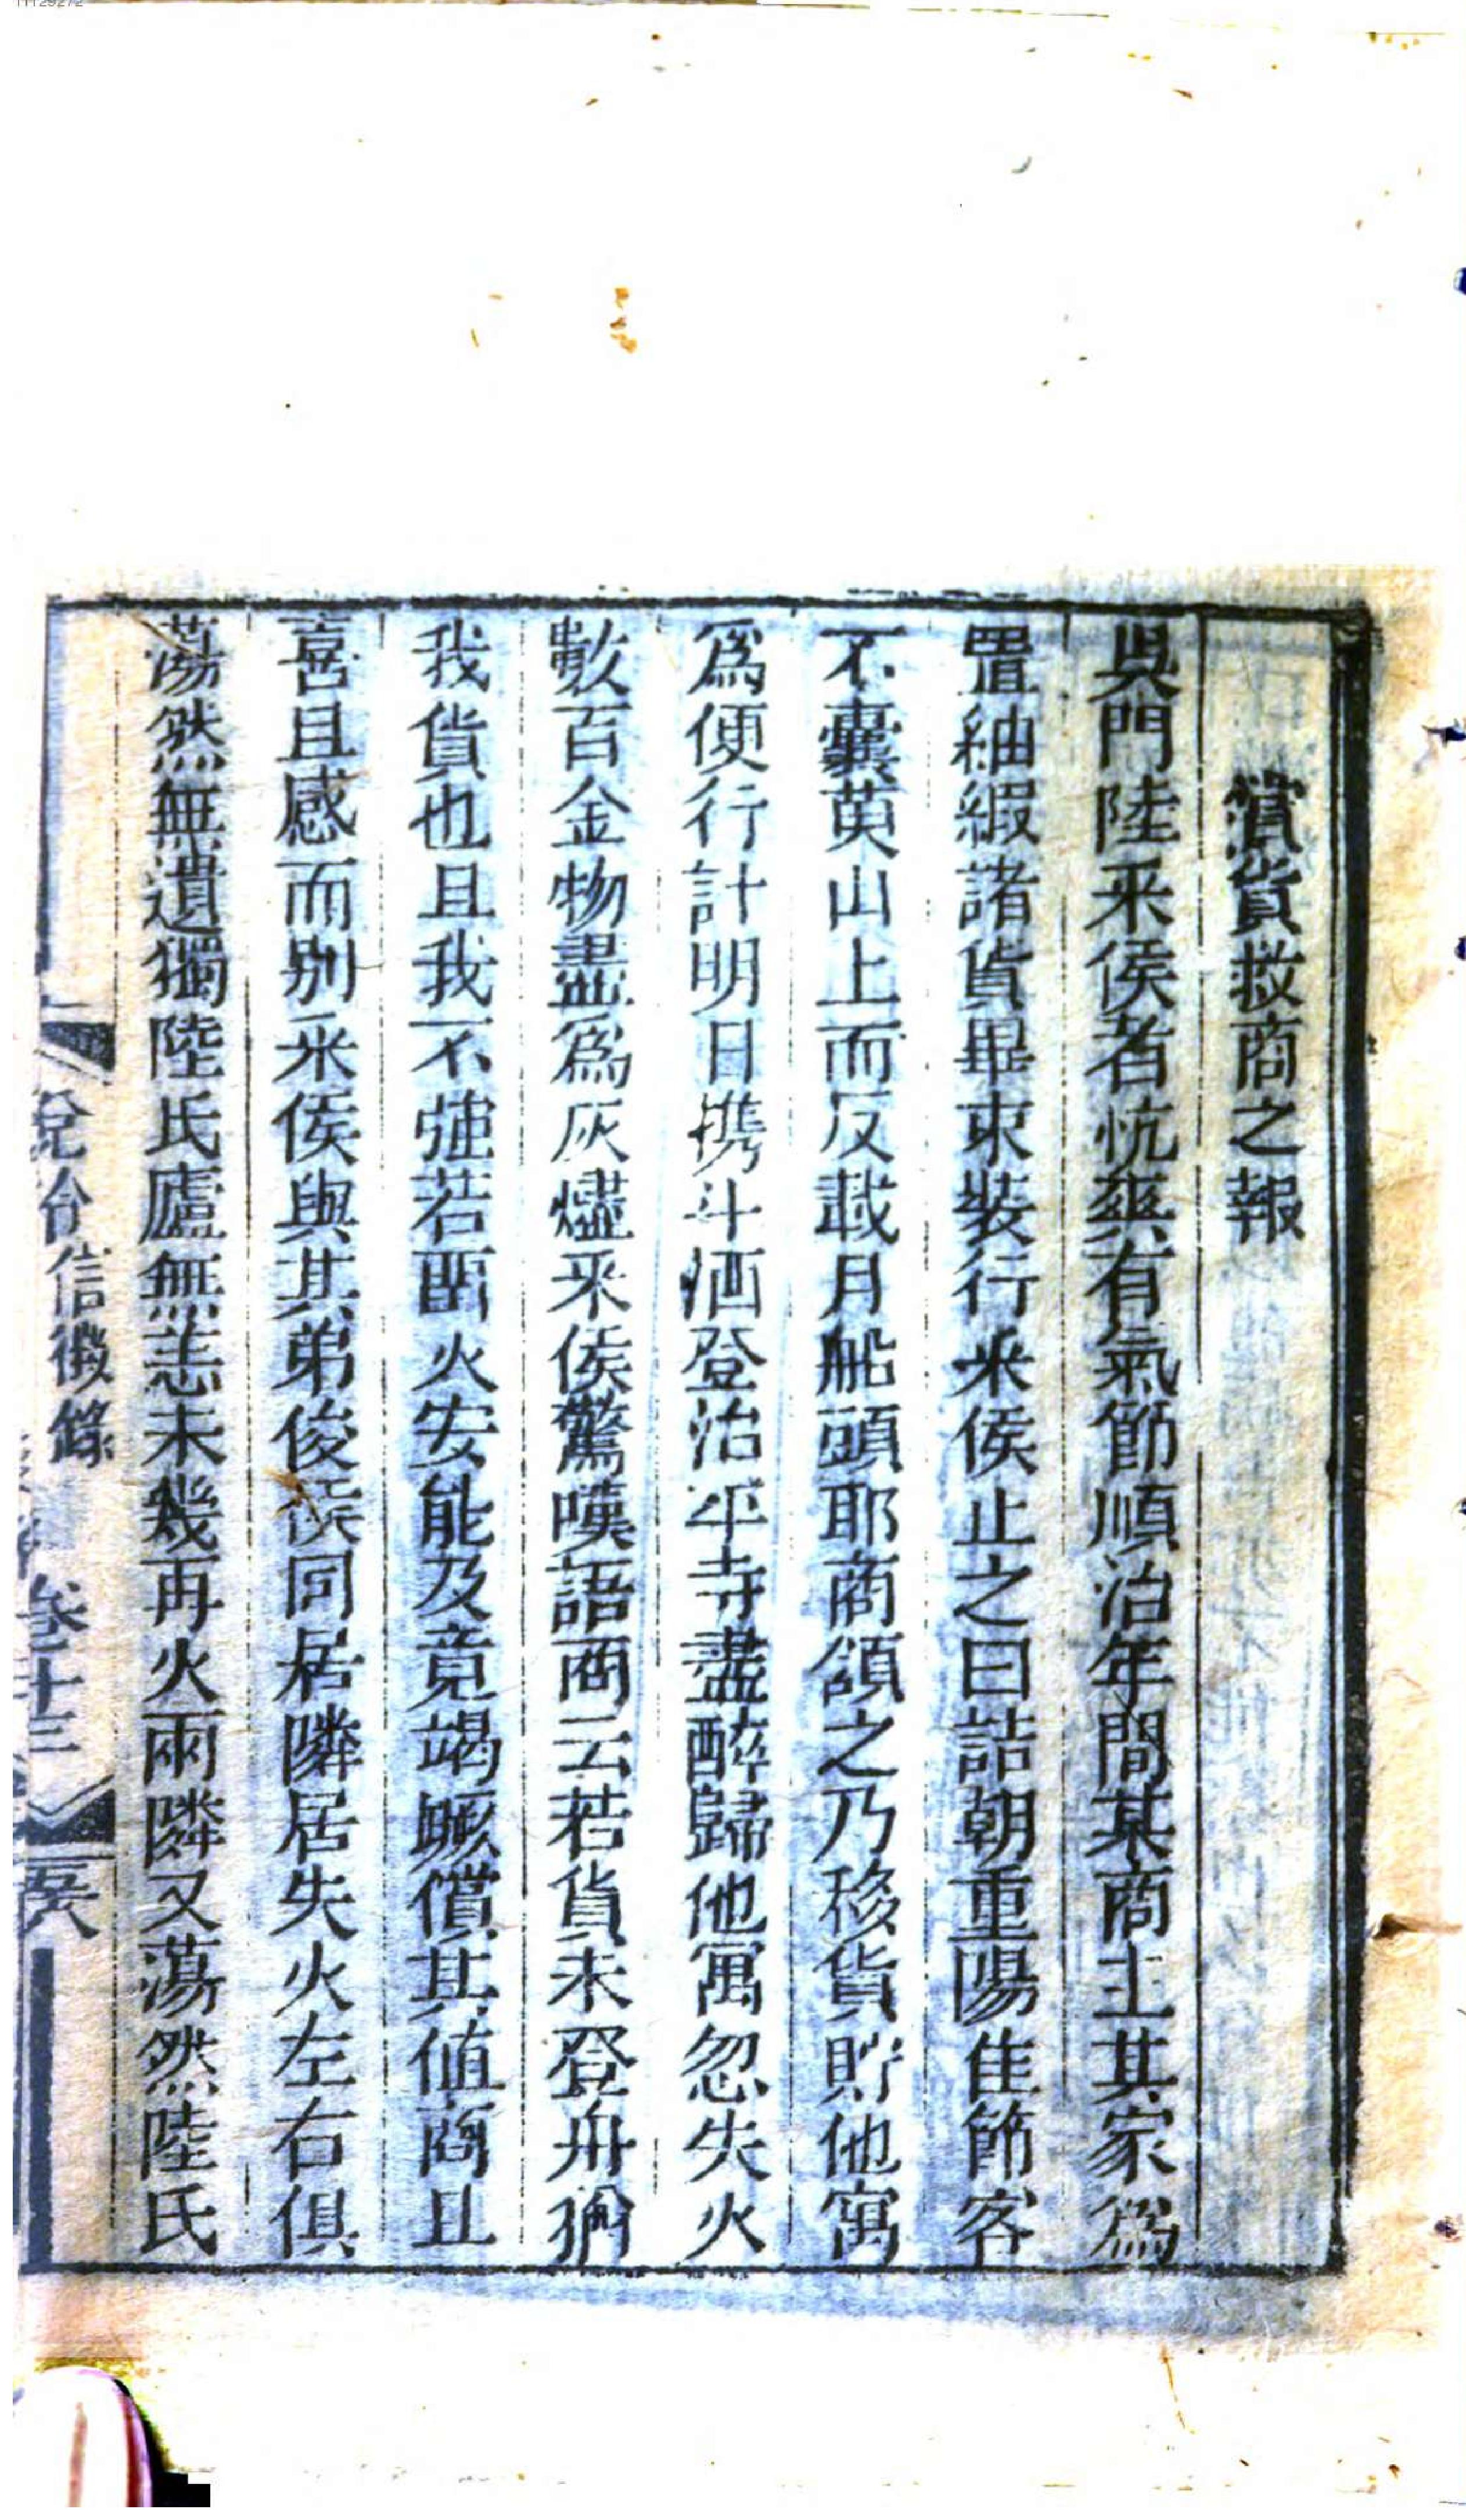 償貨救商之報
吳門陸采侯者忼爽有氣節順治年間某商主其家爲
置紬緞諸貨畢束裝行采侯止之曰詰朝重陽佳節客
不囊萸山上而反載月船頭耶商頷之乃移貨貯他寓
爲便行計明日携斗酒登治平寺盡醉歸他寓忽失火
數百金物盡爲灰燼采侯驚嘆語商云若貨未登舟猶
我貨也且我不强若畱火安能及竟竭蹶償其値商且
喜且感而别采侯與其弟俊侯同居隣居失火左右俱
蕩然無遺獨陸氏廬無恙未幾再火兩隣又蕩然陸氏
信徵錄 卷十三